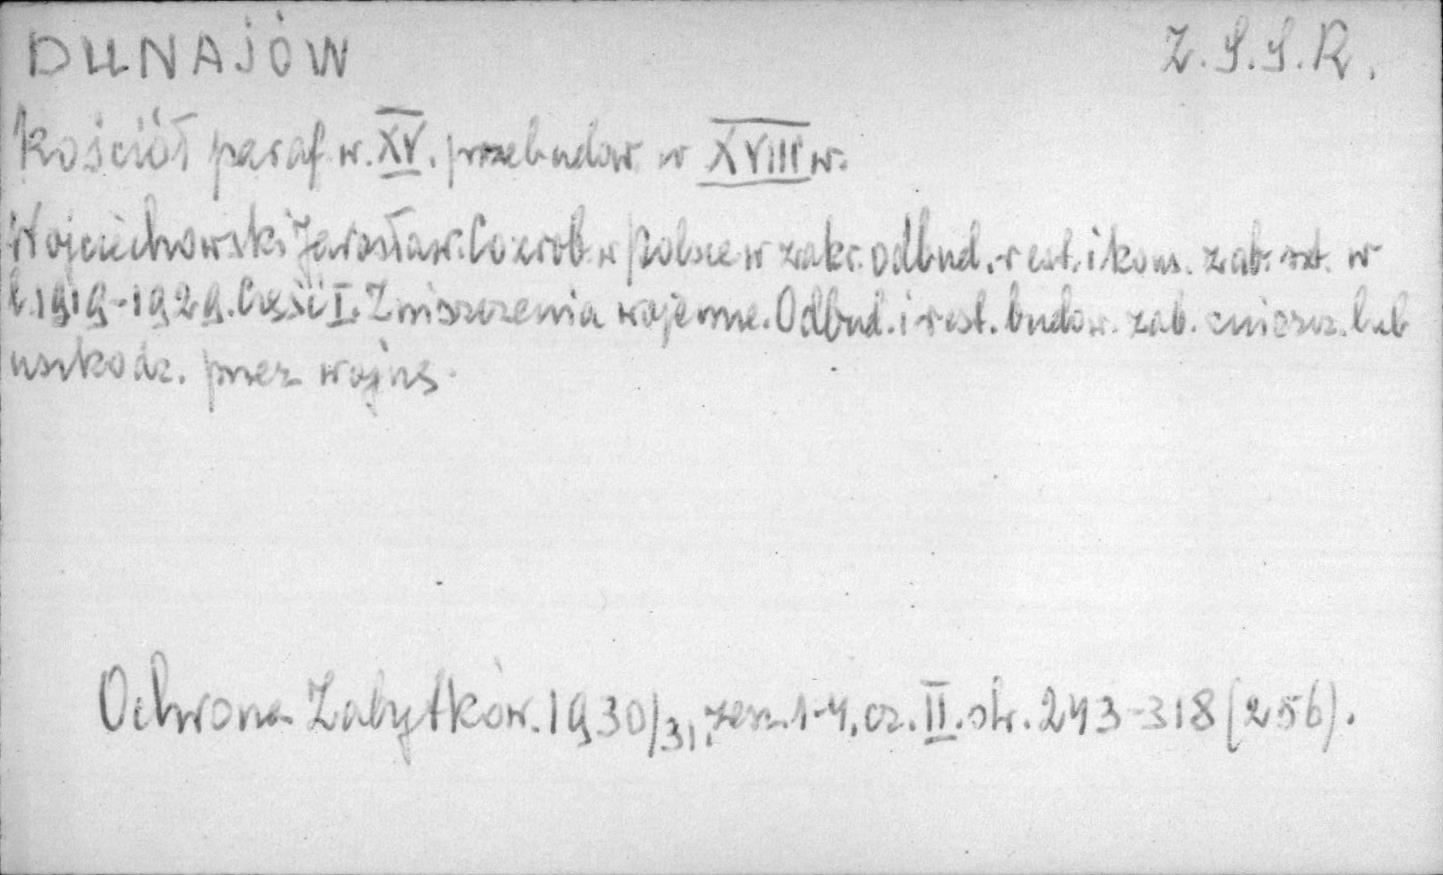 DUNAJÓW Z.S.S.R.
Kościół paraf. w. XV. przebudow. w XVIII w.
Wojciechowski Jarosław. Co zrob. w Polsce w zakr. odbud. rest. i kons. zab. szt. w
l. 1919-1929. Część I. Zniszczenia wojenne. Odbud. i rest. budow. zab. zniszcz. lub
uszkodz. przez wojnę.
Ochrona Zabytków. 1930/31, zesz. 1-4, cz. II. str. 243-318 (256).